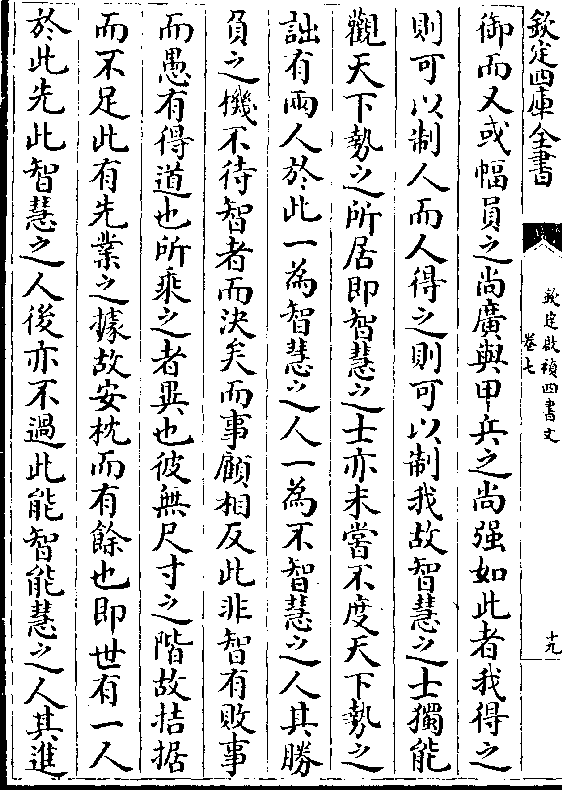 欽定四庫全書
欽定啟禎四書文
卷七
十九
御而又或幅員之尚廣與甲兵之尚强如此者我得之
則可以制人而人得之則可以制我故智慧之士獨能
觀天下勢之所居即智慧之士亦未嘗不度天下勢之
詘有兩人於此一為智慧之人一為不智慧之人其勝
負之機不待智者而決矣而事顧相反此非智有敗事
而愚有得道也所乘之者異也彼無尺寸之階故拮据
而不足此有先業之據故安枕而有餘也即世有一人
於此先此智慧之人後亦不過此能智能慧之人其進